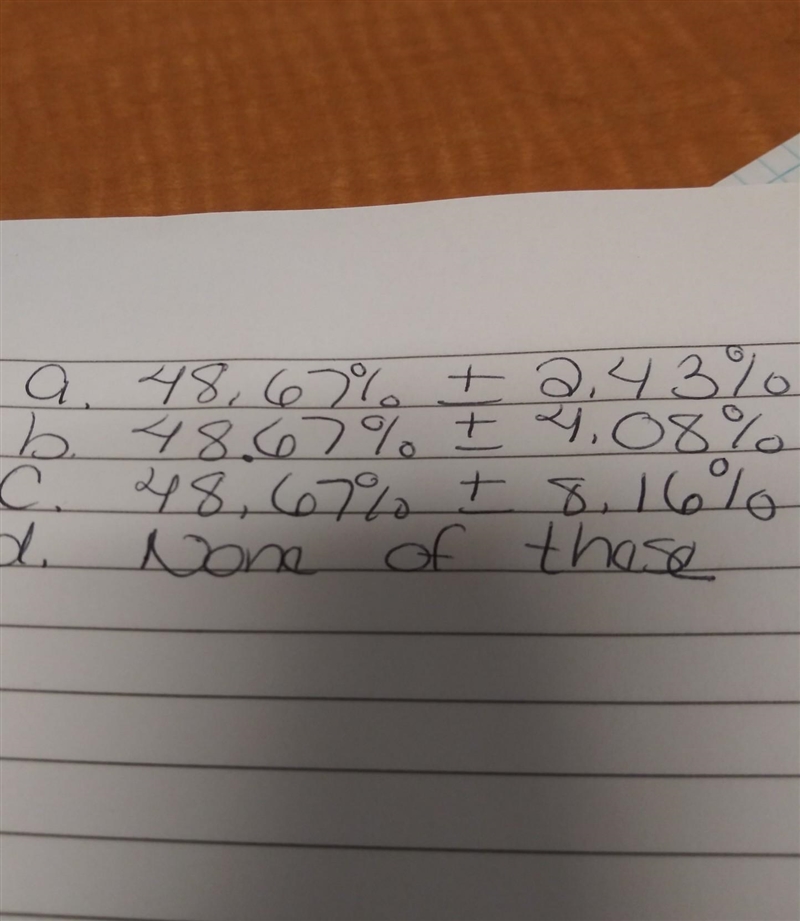 a. 48.67% ± 2.43%
b. 48.67% ± 4.08%
c. 48.67% ± 8.16%
d. None of these